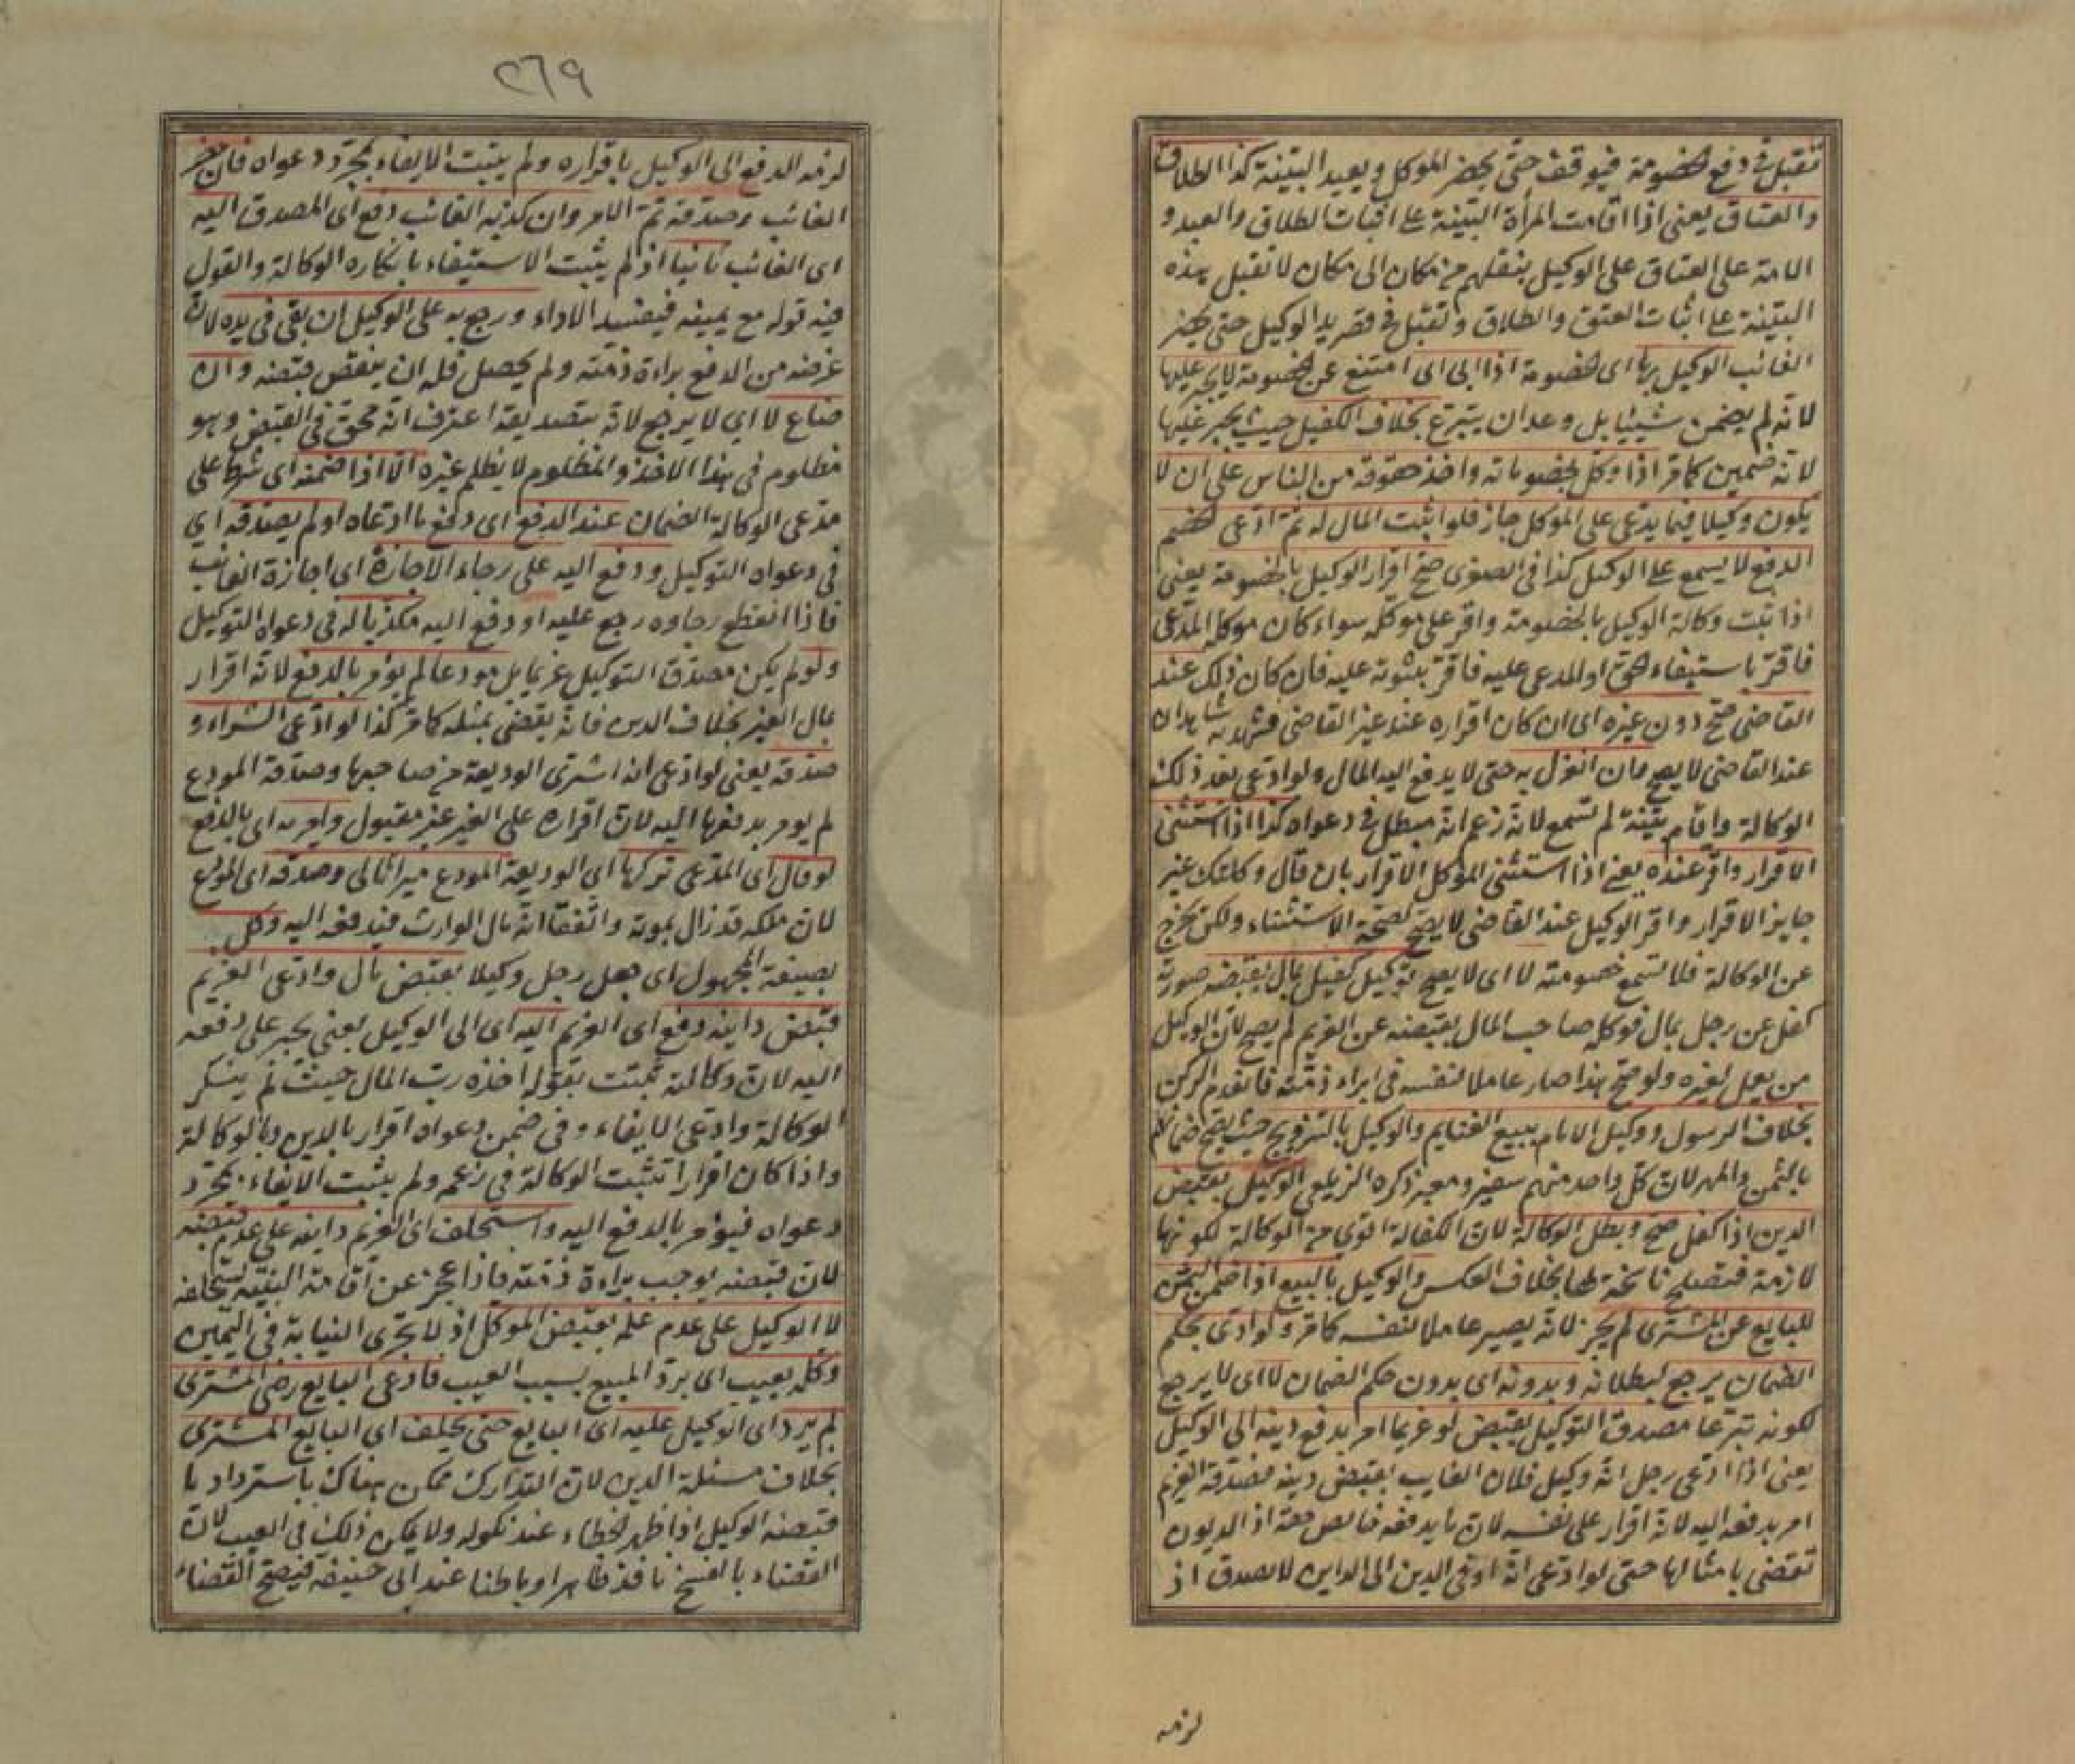 تقبل في دفع الخصومة فيوقف حتى يحضر الموكل ويعيد البينة كذا الطلاق
والعتاق يعني اذا اقامت المرأة البينة على اثبات الطلاق والعبد و
الامة على العتاق على الوكيل بنقلهم من مكان الى مكان لا تقبل هذه
البينة على اثبات العتق والطلاق وتقبل في قصر يد الوكيل حتى يحضر
الغائب الوكيل بها اى الخصومة اذا ابى اى امتنع عن الخصومة لا يجبر عليها
لانه لم يضمن شيئا بل وعد ان يتبرع بخلاف الكفيل حيث يجبر عليها
لانه ضمين كما مر اذا وكل بخصوماته واخذ حقوقه من الناس على ان لا
يكون وكيلا فيما يدعى على الموكل جاز فلو اثبت المال له ثم ادعى الخصم
الدفع لا يسمع على الوكيل كذا في الصغرى صح اقرار الوكيل بالخصومة يعني
اذا ثبت وكالة الوكيل بالخصومة واقر على موكله سواء كان موكله المدعى
فاقر باستيفاء الحق او المدعى عليه فاقر بثبوته عليه فان كان ذلك عند
القاضى صح دون غيره اى ان كان اقراره عند غير القاضى فشهد به شاهدان
عند القاضى لا يصح وان انعزل به حتى لا يدفع اليه المال ولو ادعى بعد ذلك
الوكالة واقام بينة لم تسمع لانه زعم انه مبطل في دعواه كذا اذا استثنى
الاقرار واقر عنده يعنى اذا استثنى الموكل الاقرار بان قال وكلتك غير
جايز الاقرار واقر الوكيل عند القاضى لا يصح لصحة الاستثناء ولكن يخرج
عن الوكالة فلا تسمع خصومته لا اى لا يصح توكيل كفيل بمال بقبضه صورته
كفل عن رجل بمال فوكله صاحب المال بقبضه عن الغريم لم يصح لان الوكيل
من يعمل لغيره ولو صح هذا صار عاملا لنفسه في ابراء ذمته فانعدم الركن
بخلاف الرسول ووكيل الامام ببيع الغنايم والوكيل بالتزويج حيث يصح ضمانهم
بالثمن والمهر لان كل واحد منهم سفير ومعبر ذكره الزيلعى الوكيل بقبض
الدين اذا كفل صح وبطل الوكالة لان الكفالة اقوى من الوكالة لكونها
لازمة فتصلح ناسخة لها بخلاف العكس والوكيل بالبيع اذا ضمن الثمن
للبايع عن المشترى لم يجز لانه يصير عاملا لنفسه كما مر ولو ادى بحكم
الضمان يرجع لبطلانه وبدونه اى بدون حكم الضمان لا اى لا يرجع
لكونه تبرعا مصدق التوكيل بقبض لو غريما امر بدفع دينه الى الوكيل
يعنى اذا ادعى رجل انه وكيل فلان الغايب بقبض دينه فصدقه الغريم
امر بدفعه اليه لانه اقرار على نفسه لان ما يدفعه خالص حقه اذ الديون
تقضى بامثالها حتى لو ادعى انه اوفى الدين الى الداين لا يصدق اذ
لزمه
٢٦٩
لزمه الدفع الى الوكيل باقراره ولم يثبت الايفاء بمجرد دعواه فان حضر
الغائب وصدقه تم الامر وان كذبه الغائب دفع اى المصدق اليه
اى الغائب ثانيا اذ لم يثبت الاستيفاء بانكاره الوكالة والقول
فيه قوله مع يمينه فيفسد الاداء ورجع به على الوكيل ان بقى في يده لان
غرضه من الدفع براءة ذمته ولم يحصل فله ان ينقض قبضه وان
ضاع لا اي لا يرجع لانه بتصديقه اعترف انه محق في القبض وهو
مظلوم في هذا الاخذ والمظلوم لا يظلم غيره الا اذا ضمنه اى شرط على
مدعى الوكالة الضمان عند الدفع اى دفع ما ادعاه او لم يصدقه اي
في دعواه التوكيل ودفع اليه على رجاء الاجازة اى اجازة الغائب
فاذا انقطع رجاوه رجع عليه او دفع اليه مكذبا له في دعواه التوكيل
ولو لم يكن مصدق التوكيل غريما بل مودعا لم يؤمر بالدفع لانه اقرار
بمال الغير بخلاف الدين فانه يقضى بمثله كما مر كذا لو ادعى الشراء و
صدقه يعنى لو ادعى انه اشترى الوديعة من صاحبها وصدقه المودع
لم يومر بدفعها اليه لان اقراره على الغير غير مقبول وامر به اى بالدفع
لو قال اى المدعى تركها اى الوديعة المودع ميراثا لى وصدقه اى المودع
لان ملكه قد زال بموته واتفقا انه مال الوارث فيدفعه اليه وكل
بصيغة المجهول اى جعل رجل وكيلا بقبض مال وادعى الغريم
قبض داينه دفع اى الغريم اليه اى الى الوكيل يعنى يجبر على دفعه
اليه لان وكالته ثبتت بقوله اخذه رب المال حيث لم ينكر
الوكالة وادعى الايفاء وفى ضمن دعواه اقرار بالدين وبالوكالة
واذا كان اقرارا تثبت الوكالة في زعمه ولم يثبت الايفاء بمجرد
دعواه فيؤمر بالدفع اليه واستحلف اى الغريم داينه على عدم قبضه
لان قبضه يوجب براءة ذمته فاذا عجز عن اقامة البينة يستحلفه
لا الوكيل على عدم علمه بقبض الموكل اذ لا تجرى النيابة في اليمين
وكله بعيب اى برد المبيع بسبب العيب فادعى البايع رضى المشترى
لم يرد اى الوكيل عليه اى البايع حتى يحلف اى البايع المشترى
بخلاف مسئلة الدين لان التدارك ممكن هناك باسترداد ما
قبضه الوكيل اذا ظهر الخطاء عند نكوله ولا يمكن ذلك في العيب لان
القضاء بالفسخ نافذ ظاهرا وباطنا عند ابى حنيفة فيصح القضاء